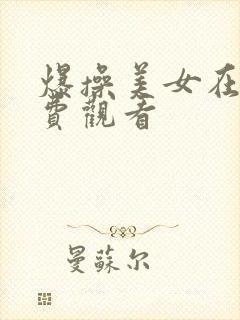 爆操美女在
費觀看
曼蘇尔